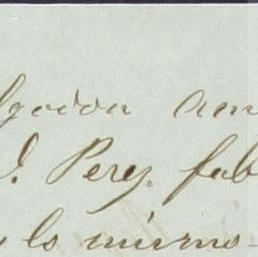 lgodon am
J. Perez fab
lo mismo-